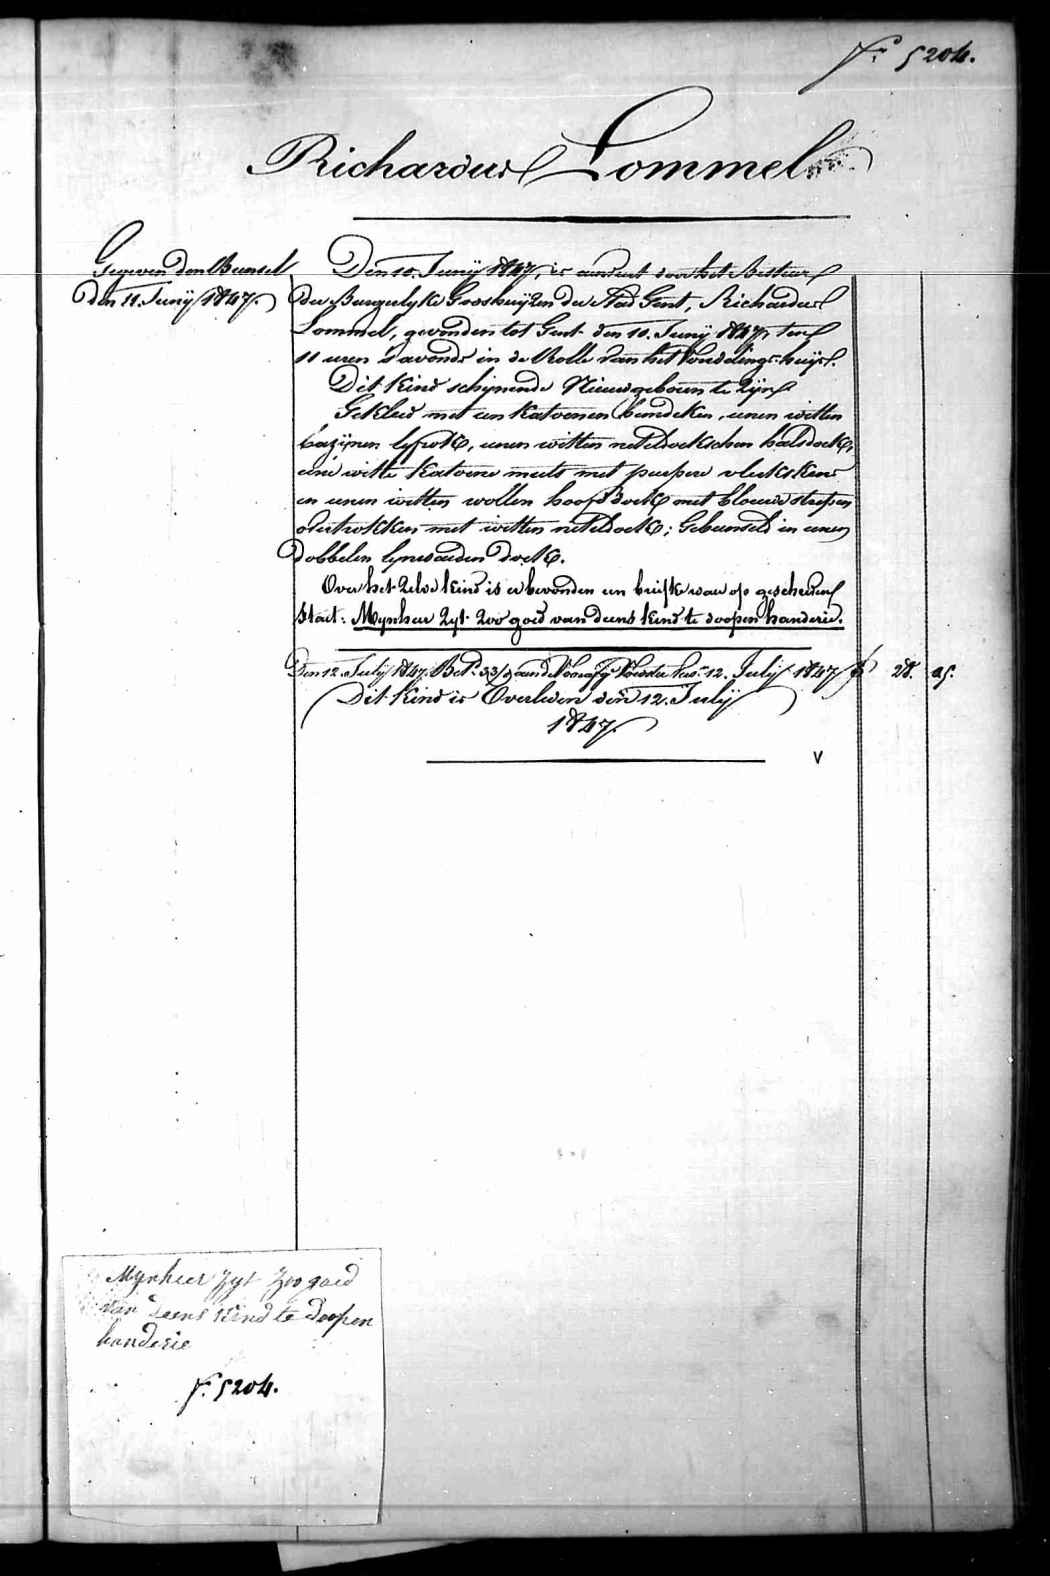 f.º 5204.
Richardus Lommel
Gegeven den Bunsel
den 11. Junÿ 1847.
Den 10. Junÿ 1847, is aanveert door het Bestuur
der Burgerlyke Godshuÿzen der Stad Gent, Richardus
Lommel, gevonden tot Gent den 10. Junÿ 1847, ten
11 uren s'avonds in de Rolle van het Vondelings-huÿs.
Dit Kind schynende Nieuwgeboren te zÿn
Gekleed met een Katoenen hemdeken, eenen witten
bazÿnen lyfrok, eenen witten neteldoekschen halsdoek,
eene witte Katoene muts met purpere vlekskens
en eenen witten wollen hoofddoek met blauwe strepen
overtrokken met witten neteldoek; Gebunseld in eenen
dobbelen lynwaeden doek.
Over het zelve kind is er bevonden een briefke waer op geschreven
staet: Mynheer zyt zoo goed van deens kind te doopen handerie.
Den 12. July 1847. Bet. 33/ aan de Voedster 12. July 1847 f 28. 25.
Dit Kind is Overleden den 12. Julÿ
1847.
V
Mynheer zyt zoo goed
van deens kind te doopen
handerie
f. 5204.